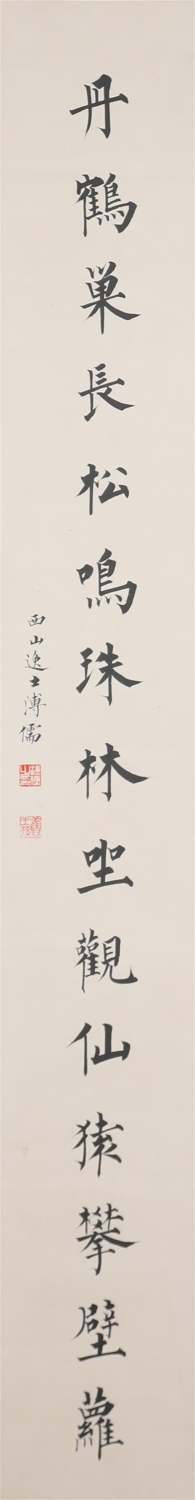 丹鶴巢長松鳴珠林坐觀仙猿攀壁蘿
西山逸士溥儒